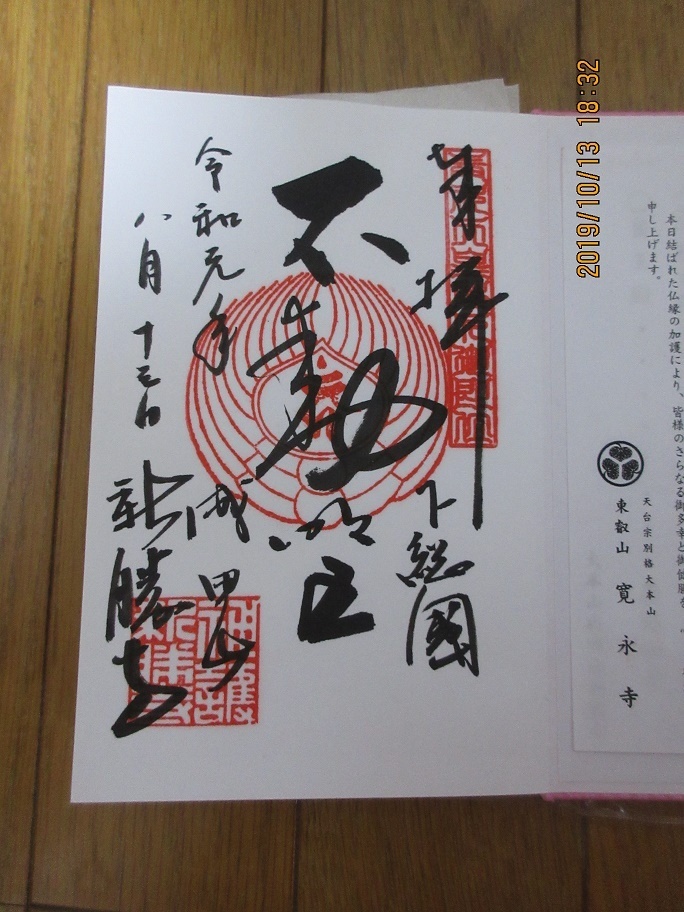 奉拝
下總國
不動明王
成田山
新勝寺
令和元年
八月十三日
2019/10/13 18:32
本日結ばれた仏縁の加護により、皆様のさらなる御多幸と御健勝を
申し上げます。
天台宗別格大本山
東叡山 寛永寺